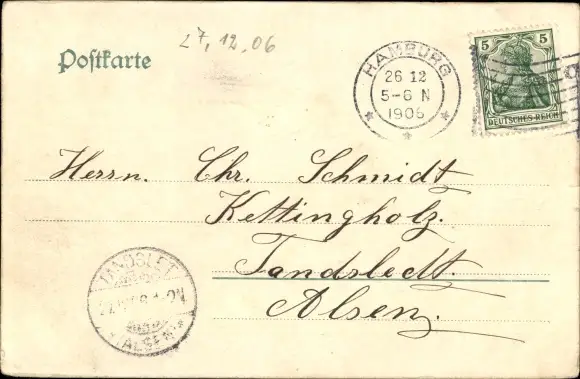 Postkarte
27.12.06
HAMBURG
26 12
5-6 N
1906
5 5
DEUTSCHES REICH
Herrn. Chr. Schmidt
Kettingholz.
Tandsledt.
Alsen.
TANDSLET
(ALSEN)